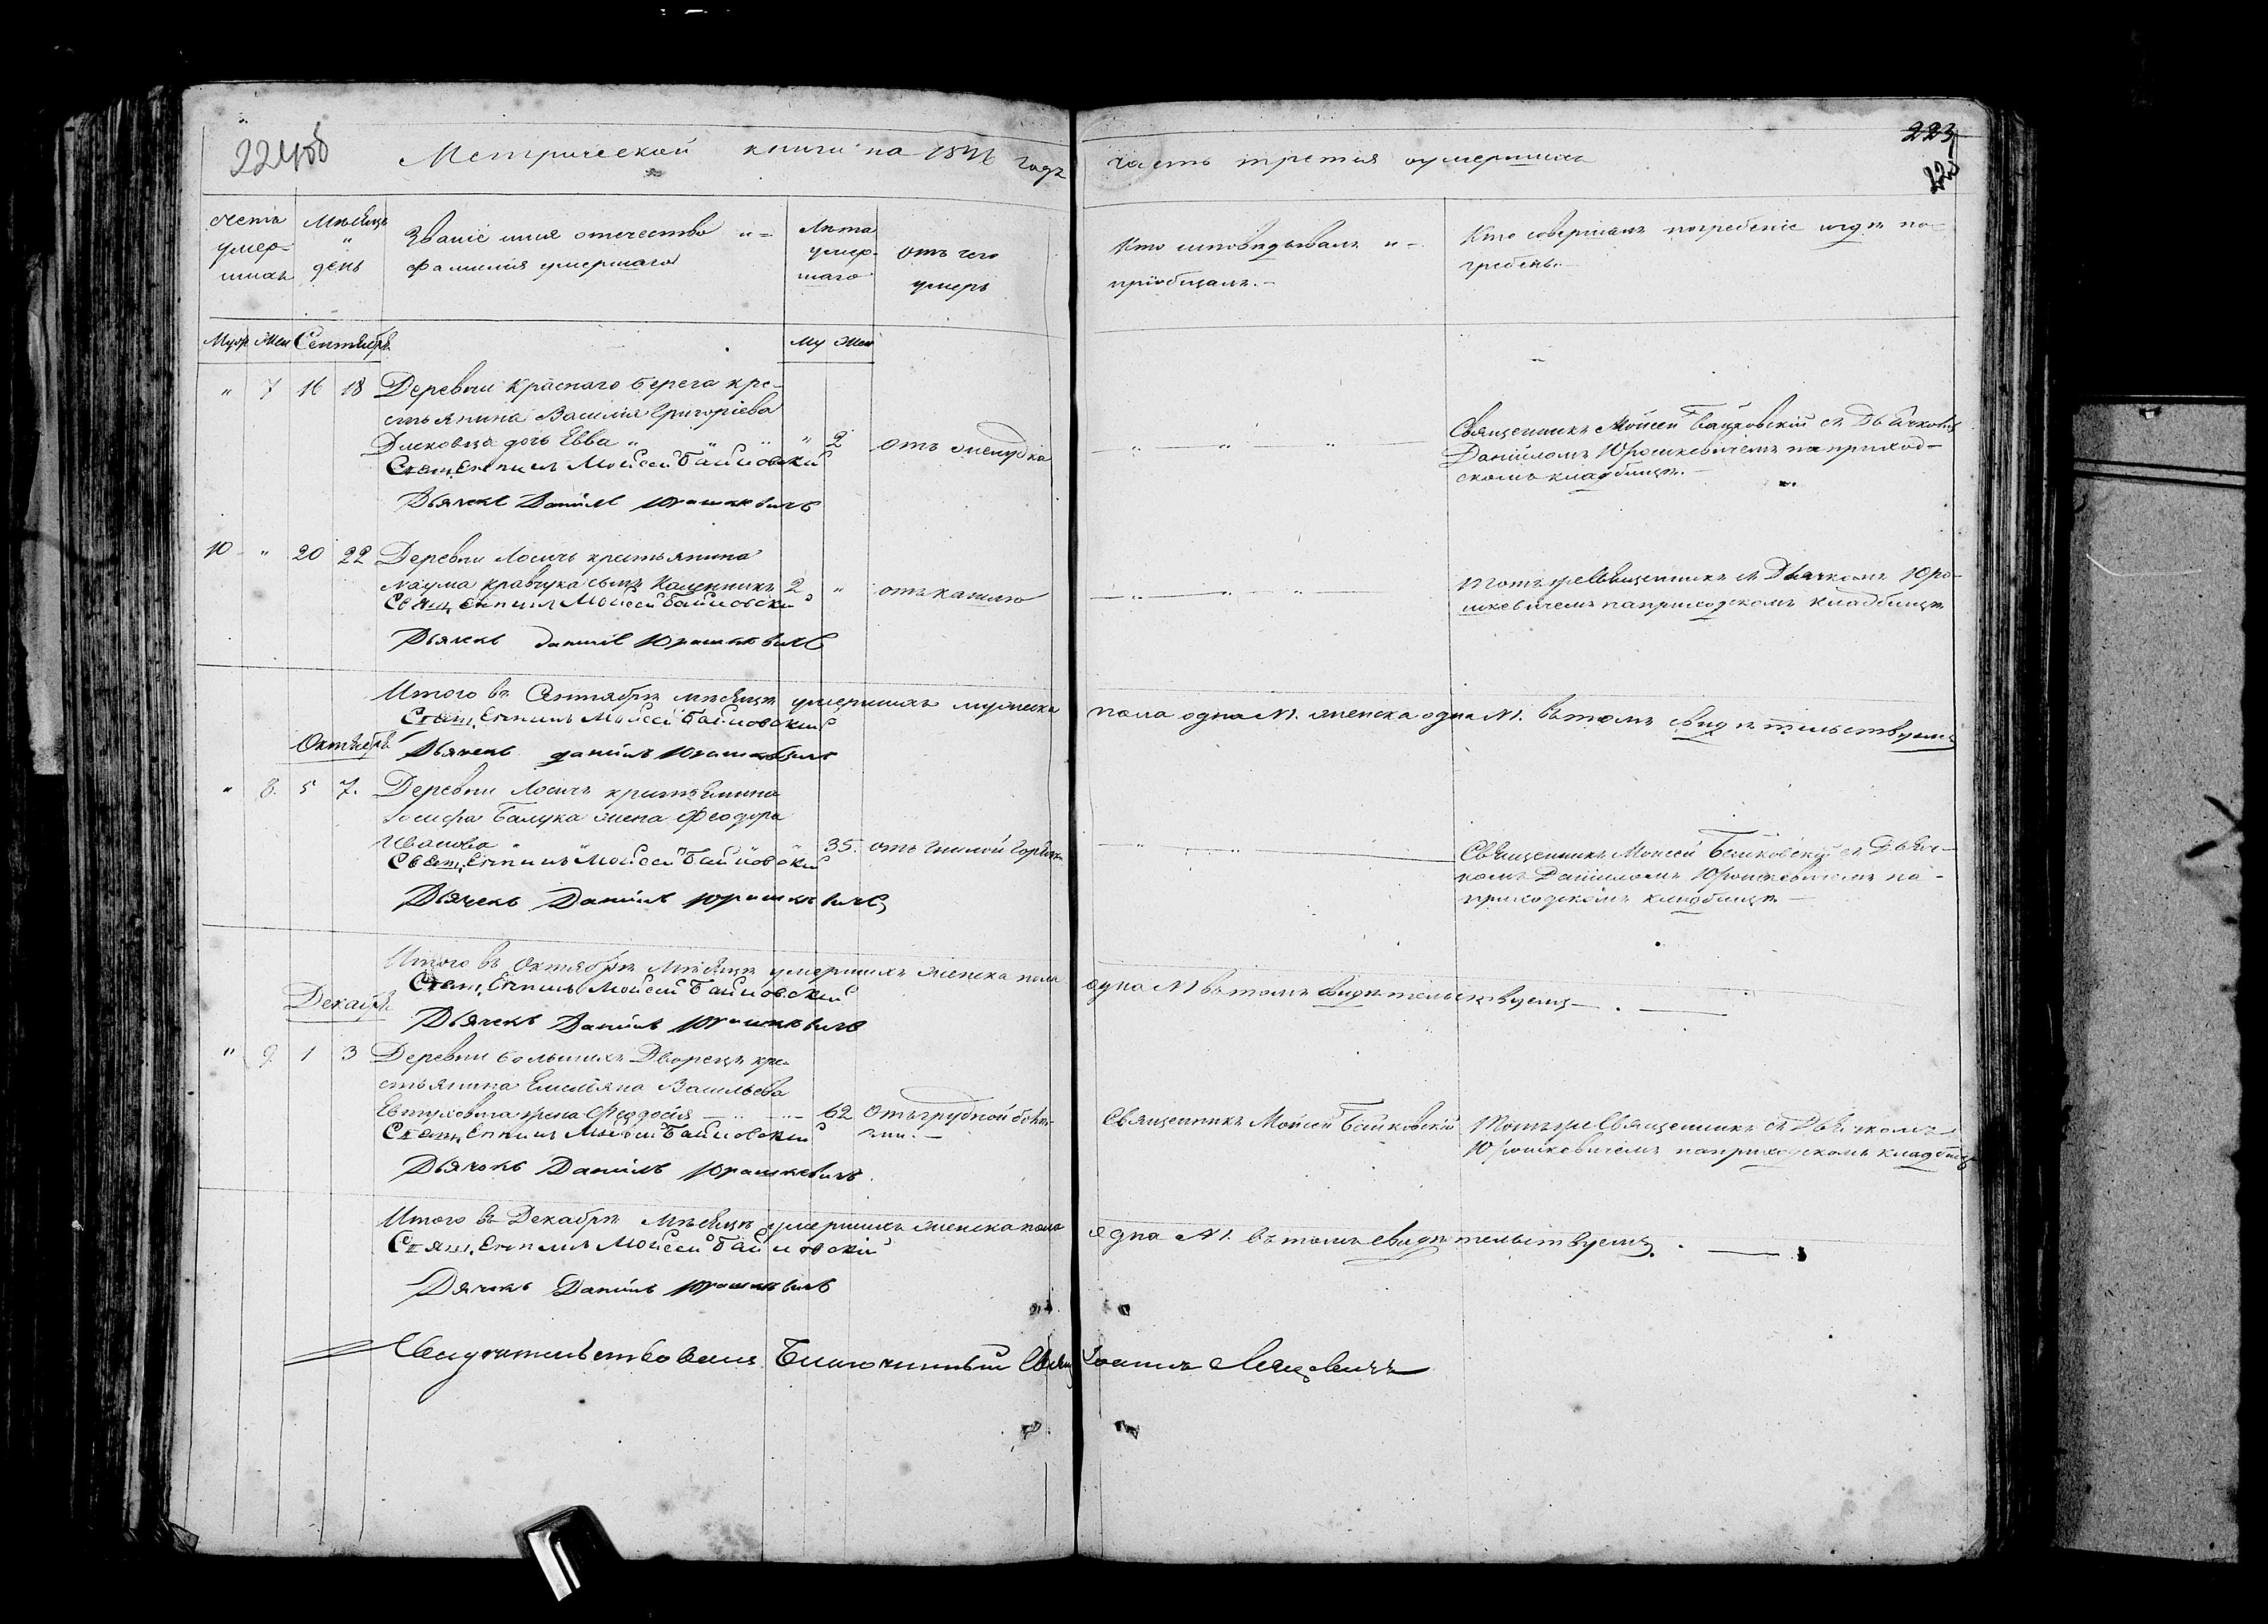 224об
Метрической книги на 1846 годъ часть третия оумершихъ
223
счетъ умер-шихъ
Мѣсяцъ и день
Званіе имя отечество и фамилія умершаго
Лѣта умер-шаго
отъ чего умеръ
Кто исповѣдывалъ и пріобщалъ.
Кто совершалъ погребеніе и гдѣ по-
гребенъ.
Муж Жен Сентябрь Му Жен
" 7 16 18 Деревни Красного берега кре-
стьянина Василія Григоріева
дочь Евва " " " " 2 отъ желудка
Священникъ Мойсей Байковскій
Дьячекъ Даніилъ Юрашкевичъ
Священникъ Мойсей Байковскій съ Дьячкомъ
Даніиломъ Юрошкевичемъ на приход-
скомъ кладбищѣ.
10 " 20 22 Деревни Лосичъ крестьянина
Наума Кравчука сынъ Калинникъ 2 " отъ кашлю
Свящ,енникъ Мойсей Байковскій
Дьячекъ Даніилъ Юрашкевичъ
тотъ же Священникъ съ Дьячкомъ Юро-
шкевичемъ на приходскомъ кладбищѣ
Итого въ Сентябрѣ мѣсяцѣ умершихъ мужеска пола одна №1. женска одна №1. въ томъ свидѣтельствуемъ
Священникъ Мойсей Байковскій
Октябрь Дьячекъ Даніилъ Юрашкевичъ
" 8. 5 7. Деревни Лосичъ крестьянина
Іосифа Балука жена Феодора
Иванова " " " 35. отъ гнилой горячки
Священникъ Мойсей Байковскій
Дьячекъ Даніилъ Юрашкевичъ
Священникъ Моисей Байковскій съ Дьяч-
комъ Даніиломъ Юрошкевичемъ на-
приходскомъ кладбищѣ
Итого въ Октябрѣ Мѣсяцѣ умершихъ женска пола одна №1 въ томъ свидѣтельствуемъ
Священникъ Мойсей Байковскій
Декабрь Дьячекъ Даніилъ Юрашкевичъ
" 9. 1 3 Деревни большихъ Дворецъ кре-
стьянина Емельяна Васильева
жена Феодосія 62 отъ грудной болѣз-
ни.
Священникъ Мойсей Байковскій
Дьячокъ Даніилъ Юрашкевичъ.
Священникъ Мойсей Байковскій
Тотъ же Священникъ съ Дьячкомъ
Юрошкевичемъ на приходскомъ кладбищѣ
Итого въ Декабрѣ мѣсяцѣ умершихъ женска пола една №1. въ томъ свидѣтельствуемъ.
Священникъ Мойсей Байковскій
Дячокъ Даніилъ Юрашкевичъ
Свидѣтельствовалъ Благочинный Свящ Іоаннъ